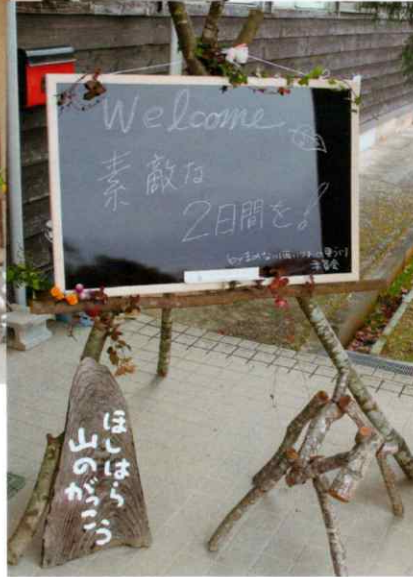 Welcome
素敵な
2日間を!
ほしはら
山のがっこう